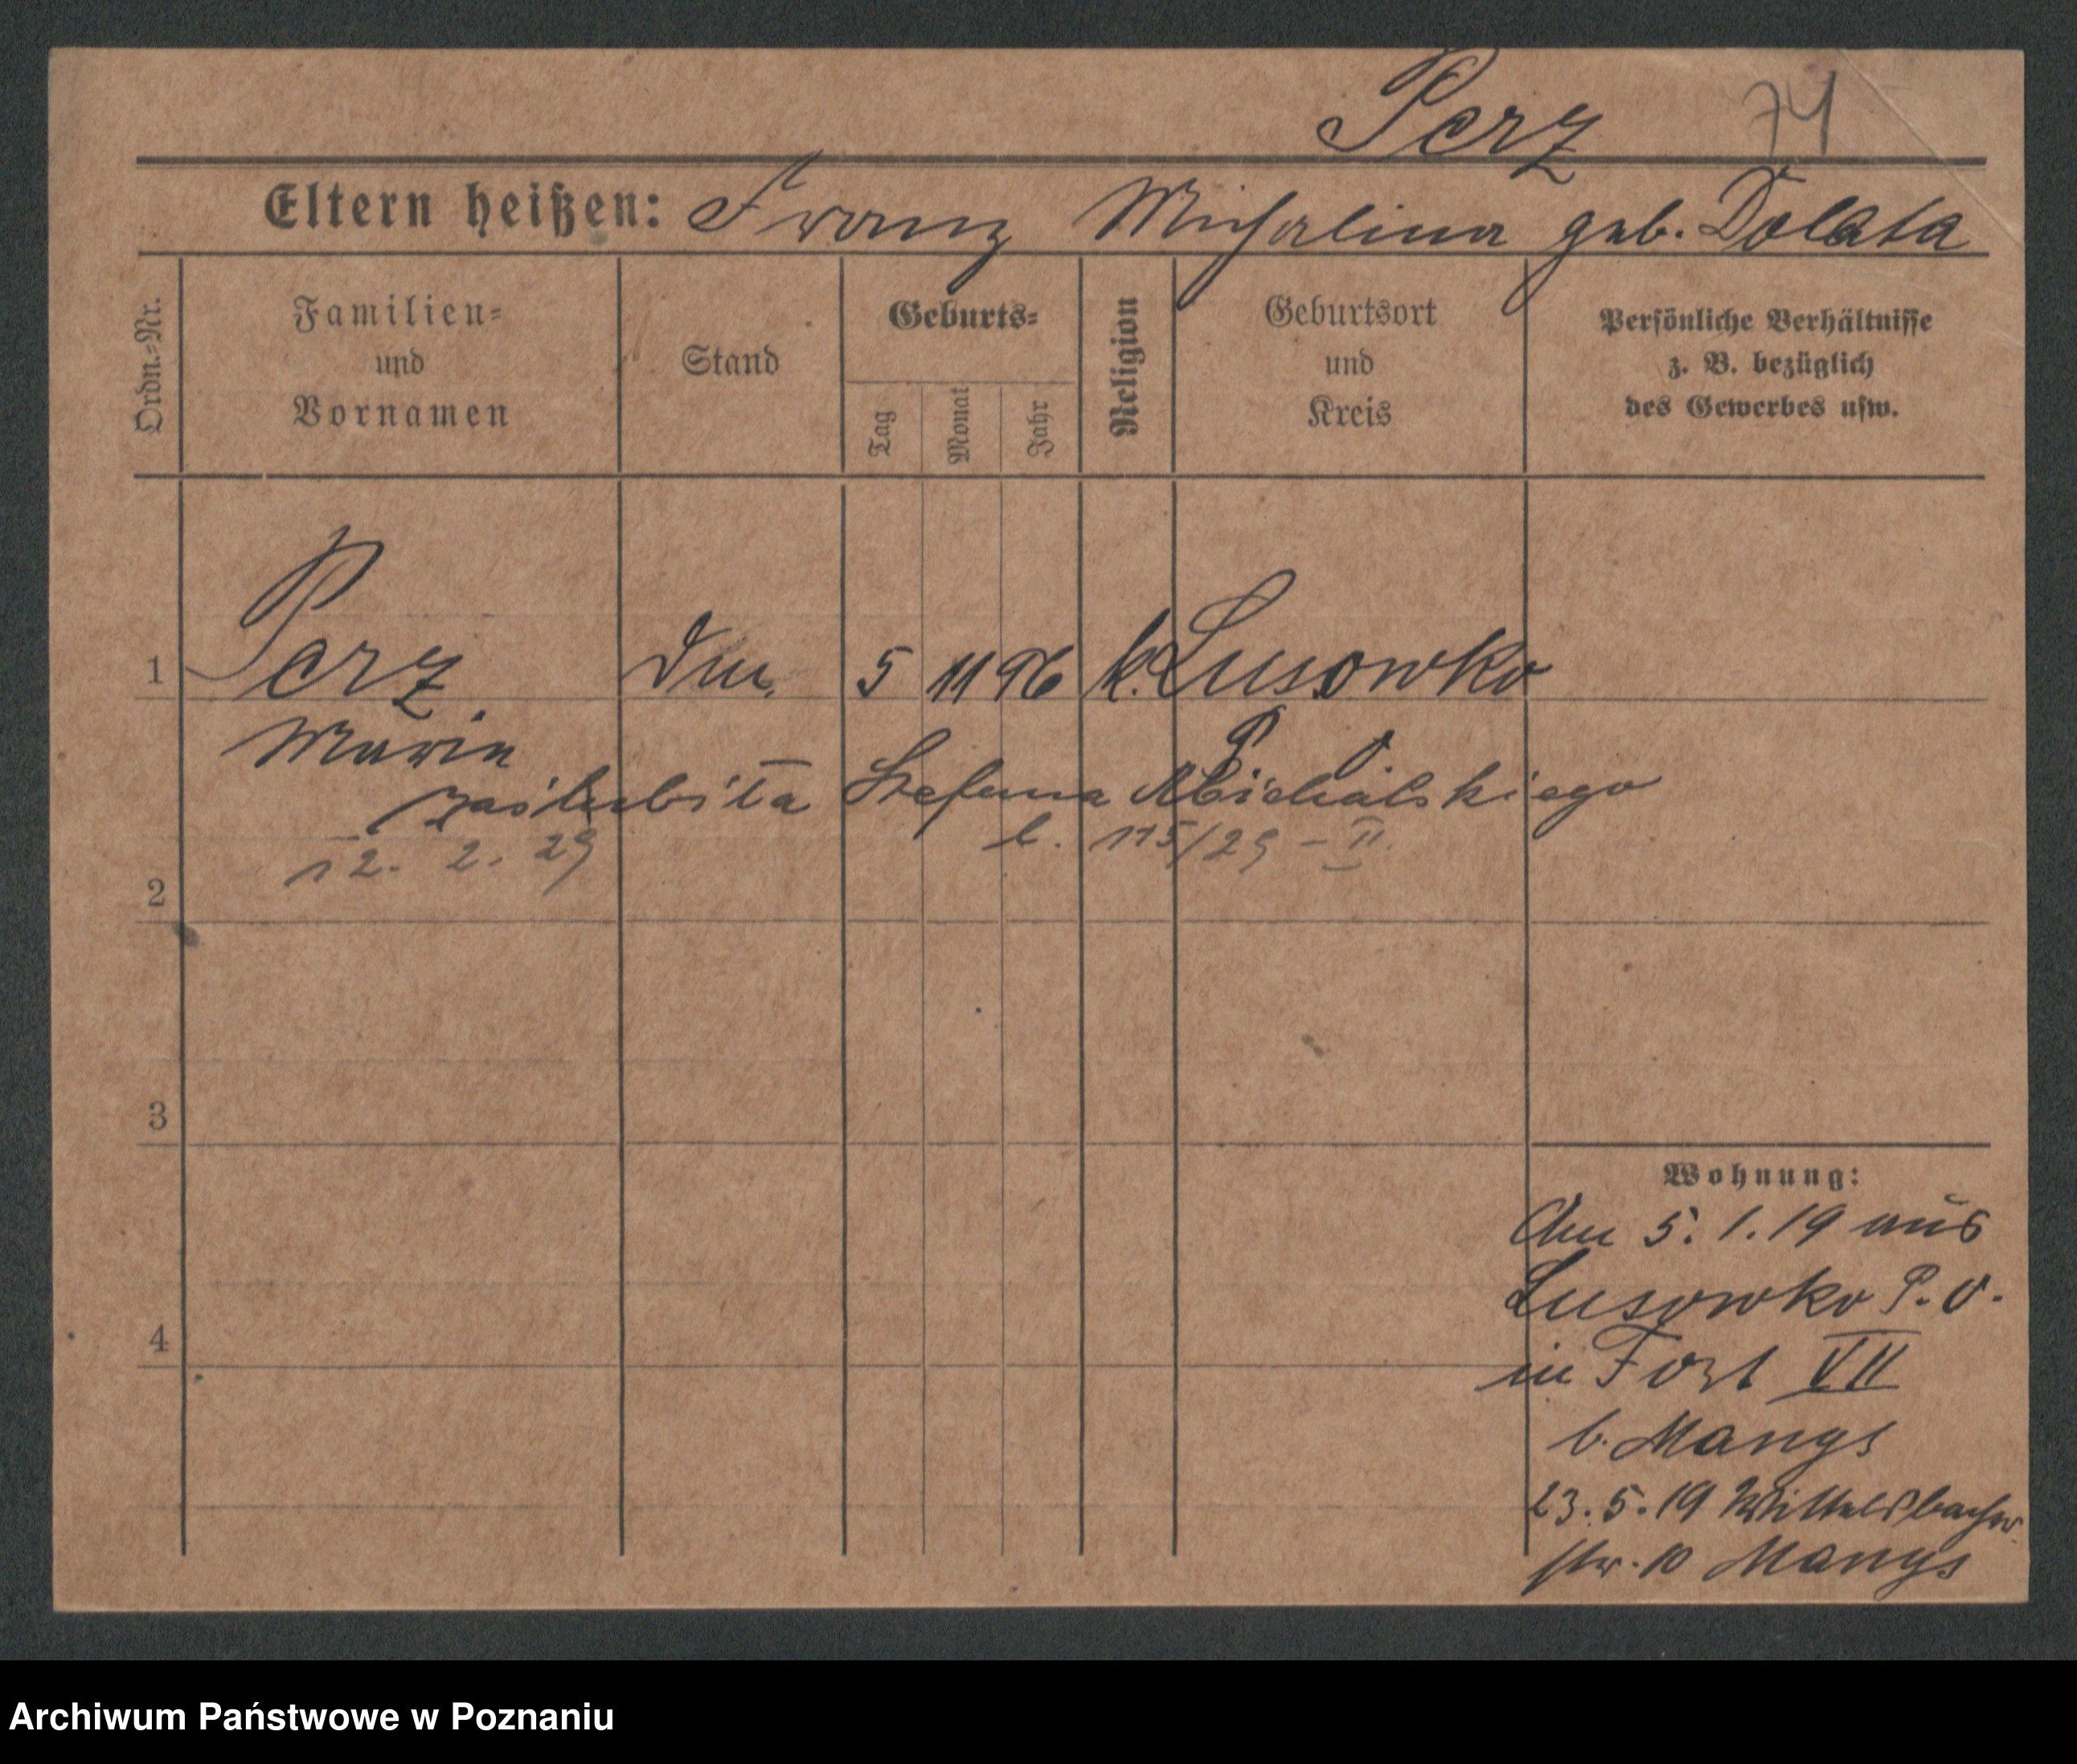 Perz 74
Eltern heißen: Franz Michalina geb. Dolata
Ordn.-Nr.
Familien-
und
Vornamen
Stand
Geburts-
Tag
Monat
Jahr
Religion
Geburtsort
und
Kreis
Persönliche Verhältnisse
z. B. bezüglich
des Gewerbes usw.
1 Perz 5 11 96 k. Lusowko
Maria P. O.
zaślubiła Stefana Michalskiego
12. 2. 29 l. 115/29 - II.
2
3
4
Wohnung:
Am 5. 1. 19 aus
Lusowko P. O.
in Fort VII
b. Mangs
23. 5. 19 Wittelsbacher
str. 10 Mangs
Archiwum Państwowe w Poznaniu